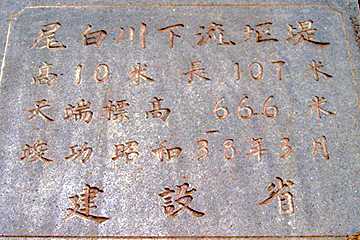 尾白川下流堰堤
高10米 長107米
天端標高 666米
竣功昭和38年3月
建設省